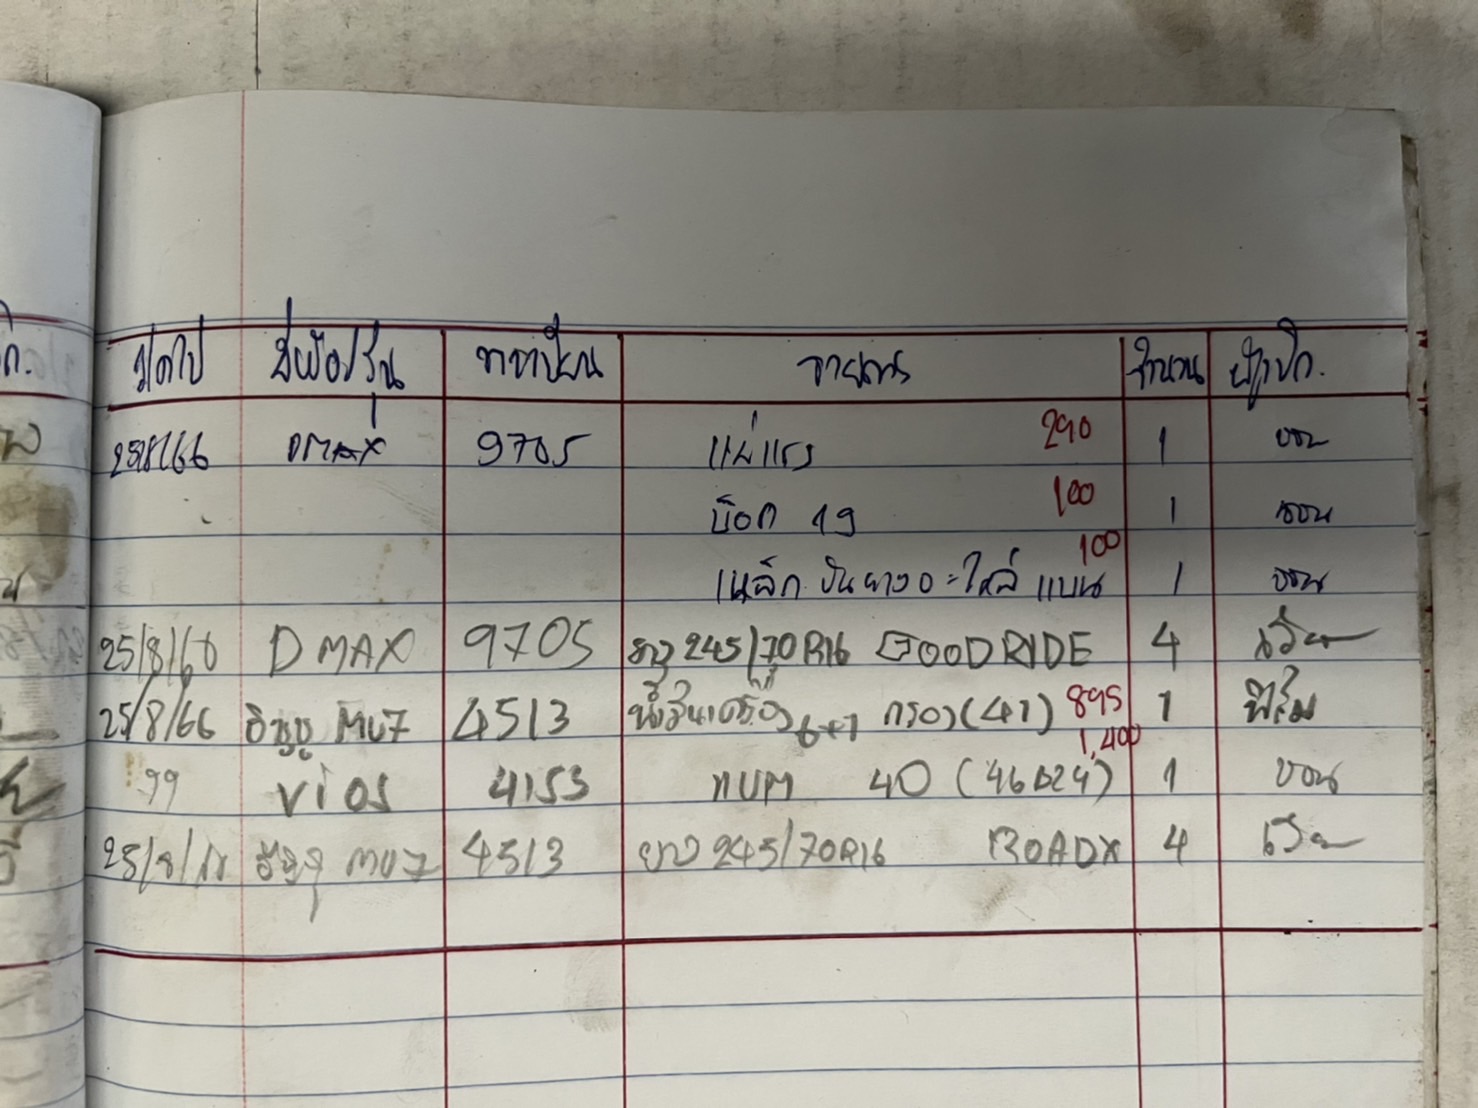 ว/ด/ป ยี่ห้อ/รุ่น ทะเบียน รายการ จำนวน ผู้เบิก.
25/8/66 DMAX 9705 แม่แรง 290 1 บอน
บ๊อก 19 100 1 บอน
เหล็ก ขันยางอะไหล่ แบน 100 1 บอน
25/8/66 D MAX 9705 ยาง 245/70R16 GOODRIDE 4
25/8/66 อีซูซุ MU7 4513 น้ำมันเครื่อง 6+1 กรอง (41) 895 1 ฟิล์ม
99 Vios 4153 แบต 40 (46B24) 1,400 1 บอน
25/8/66 อีซูซุ MU7 4513 ยาง 245/70R16 ROADX 4